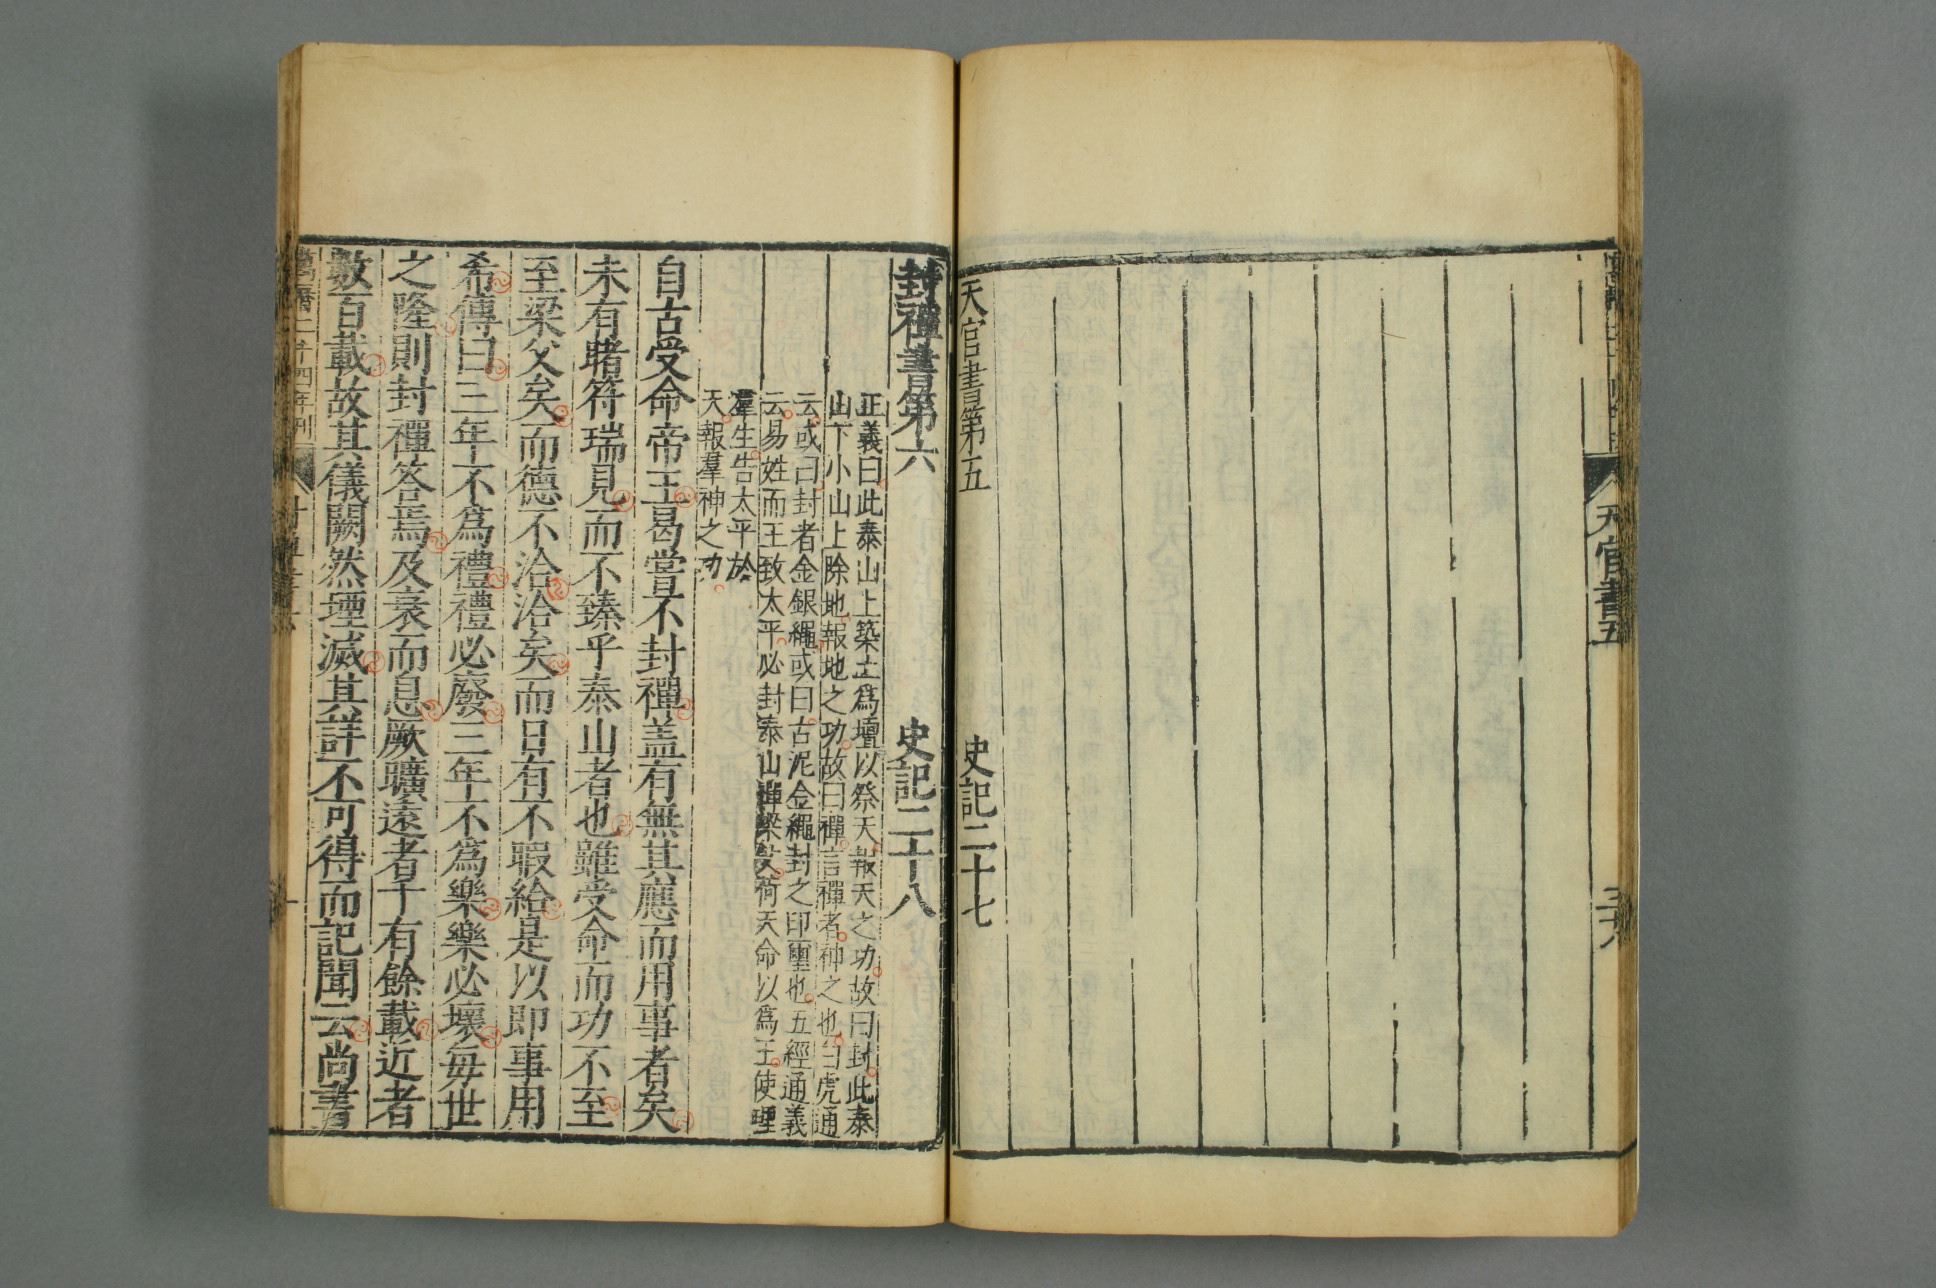 天官書五
天官書第五 史記二十七
封禪書第六 史記二十八
正義曰此泰山上築土爲壇以祭天報天之功故曰封此泰
山下小山上除地報地之功故曰禪言禪者神之也白虎通
云或曰封者金銀繩或曰古泥金繩封之印璽也五經通義
云易姓而王致太平必封泰山禪梁父荷天命以爲王使理
羣生告太平於
天報羣神之功
自古受命帝王曷嘗不封禪蓋有無其應而用事者矣
未有睹符瑞見而不臻乎泰山者也雖受命而功不至
至梁父矣而德不洽洽矣而日有不暇給是以即事用
希傳曰三年不爲禮禮必廢三年不爲樂樂必壞每世
之隆則封禪答焉及衰而息厥曠遠者千有餘載近者
數百載故其儀闕然堙滅其詳不可得而記聞云尚書
萬曆二十四年刊